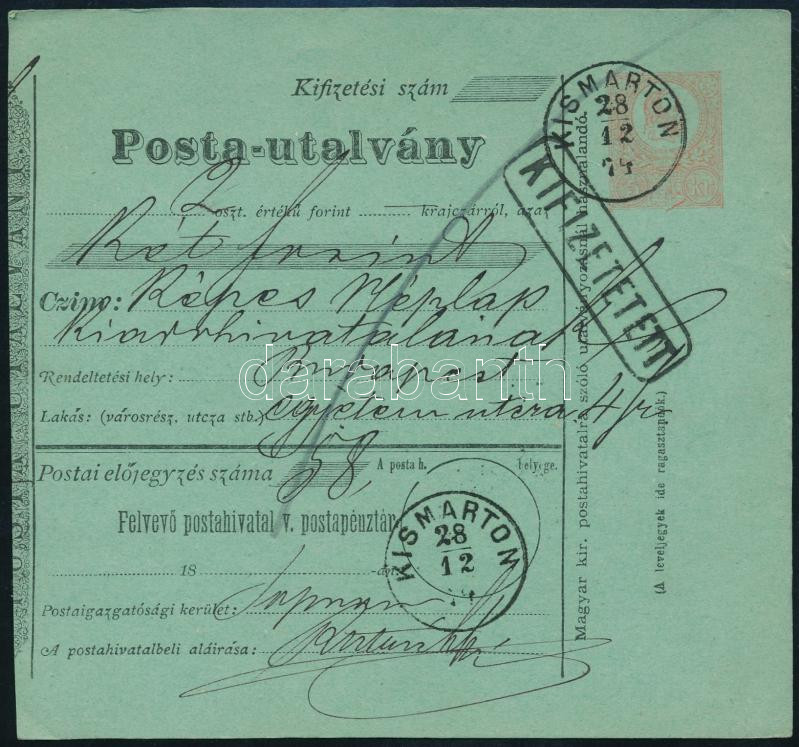 Kifizetési szám
KISMARTON
28
12
74
Posta-utalvány
kr.
KIFIZETETETT
2 oszt. értékű forint krajczárról, azaz
Két forint
Czim: Képes Néplap
kiadóhivatalának
Rendeltetési hely: Budapest
Lakás: (városrész, utcza stb.) egyetem utcza 4
darabanth
Postai előjegyzés száma 58
A posta h. belyege.
Felvevő postahivatal v. postapénztár
KISMARTON
28
12
18
Postaigazgatósági kerület: Soprony
A postahivatalbeli aláirása:
Magyar kir. postahivatalra szóló utalványozásnál használandó.
(A leveljegyek ide ragasztandók.)
POSTAI UTALVÁNY